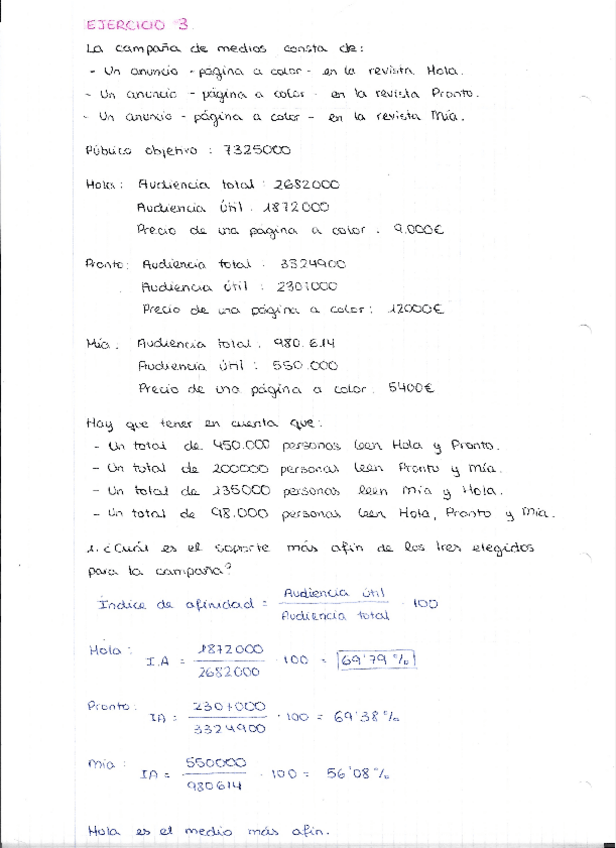 EJERCICIO 3.
La campaña de medios consta de:
- Un anuncio - página a color - en la revista Hola.
- Un anuncio - página a color - en la revista Pronto.
- Un anuncio - página a color - en la revista Mía.
Público objetivo : 7325000
Hola: Audiencia total : 2682000
Audiencia útil : 1872000
Precio de una página a color : 9.000€
Pronto: Audiencia total : 3324900
Audiencia útil : 2301000
Precio de una página a color : 12000€
Mía: Audiencia total : 980.614
Audiencia útil : 550.000
Precio de una página a color : 5400€
Hay que tener en cuenta que:
- Un total de 450.000 personas leen Hola y Pronto.
- Un total de 200000 personas leen Pronto y Mía.
- Un total de 135000 personas leen Mía y Hola.
- Un total de 98.000 personas leen Hola, Pronto y Mía.
1. ¿Cuál es el soporte más afín de los tres elegidos
para la campaña?
Índice de afinidad = Audiencia útil / Audiencia total · 100
Hola : I.A = 1872000 / 2682000 · 100 = 69'79 %
Pronto : IA = 2301000 / 3324900 · 100 = 69'38 %
Mía : IA = 550000 / 980614 · 100 = 56'08 %
Hola es el medio más afín.